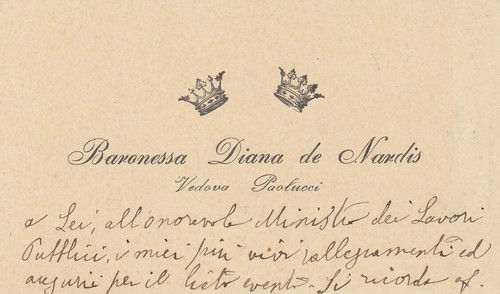 Baronessa Diana de Nardis
Vedova Paolucci
a Lei, all'onorevole Ministro dei Lavori
Pubblici, i miei più vivi rallegramenti ed
augurii per il lieto evento. Si ricorda af.